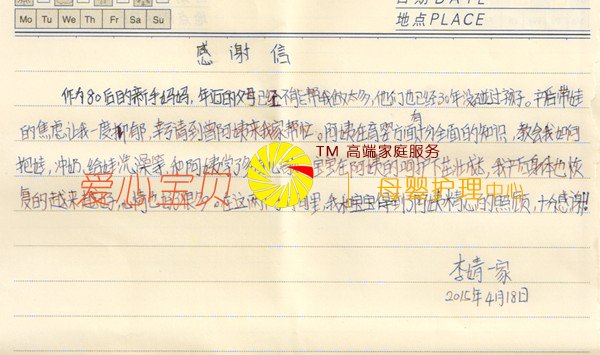 日期 DATE
地点 PLACE
Mo Tu We Th Fr Sa Su
感谢信
作为80后的新手妈妈,年迈的父母已经不能帮我做太多,他们也已经30年没碰过孩子。产后带娃
的焦虑让我一度抑郁,幸请到曾阿姨来我家帮忙。阿姨在育婴方面有十分全面的知识,教会我如何
抱娃,冲奶,给娃洗澡等,和阿姨学 宝宝在阿姨的呵护下茁壮成 我产后身体也恢
复的越来越好,心情也 在这两个 里,我和宝宝得到了阿姨精心的照顾,十分感谢!
TM 高端家庭服务
爱心宝贝 母婴护理中心
李婧一家
2015年4月18日